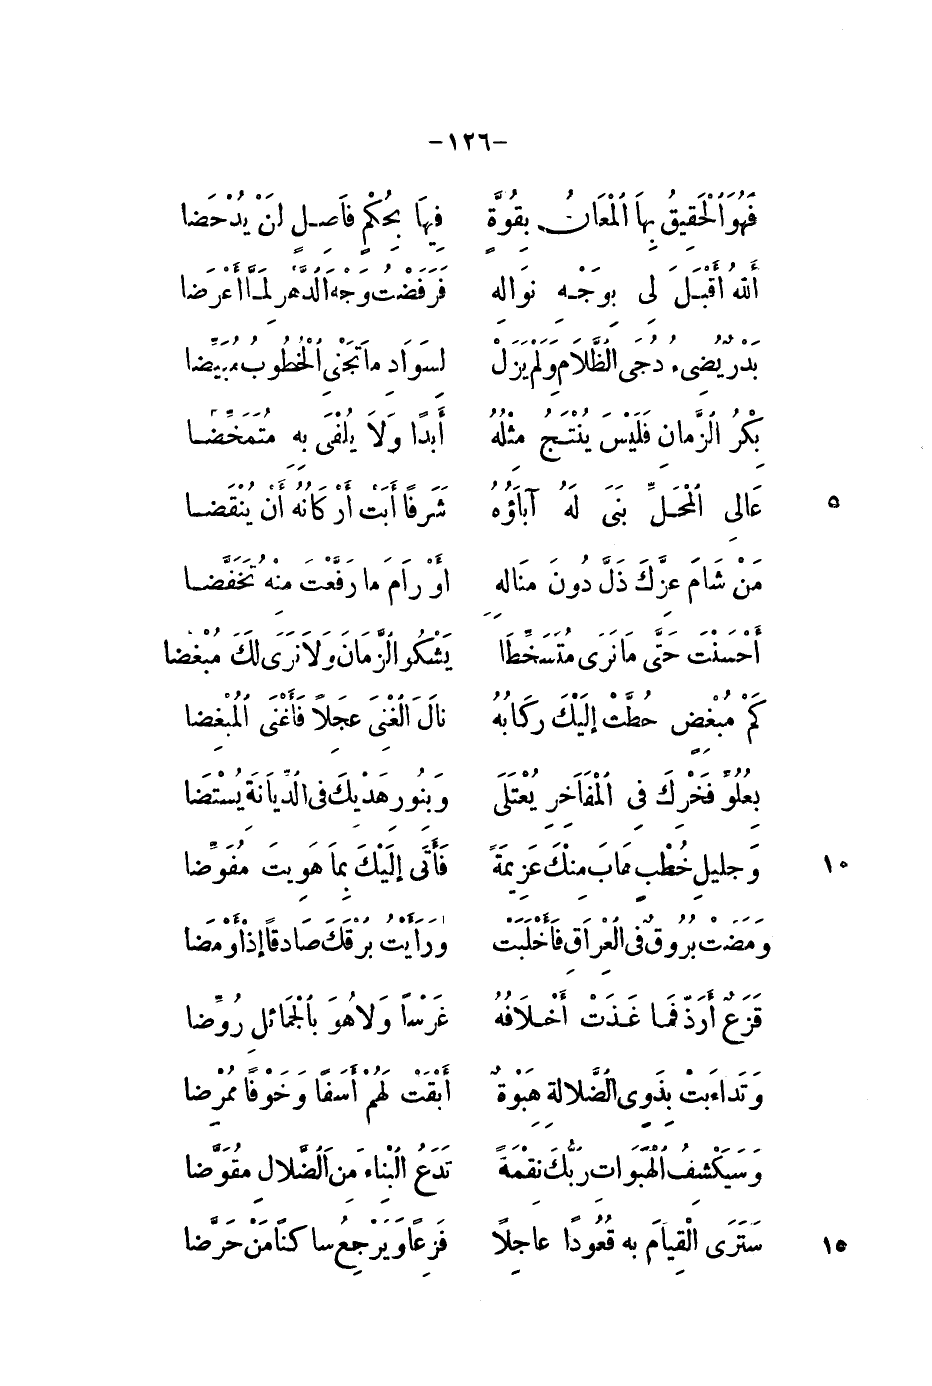 -١٢٦-
فَهُوَ ٱلْحَقِيقُ بِهَا ٱلْمَعَانُ بِقُوَّةٍ فِيهَا بِحُكْمٍ فَاصِلٍ لَنْ يَدْحَضَا
أَللهُ أَقْبَلَ لِي بِوَجْهِ نَوَالِهِ فَرَفَضْتُ وَجْهَ ٱلدَّهْرِ لَمَّا أَعْرَضَا
بَدْرٌ يُضِيءُ دُجَى ٱلظَّلَامِ وَلَمْ يَزَلْ لِسَوَادِ مَا تَجْنِي ٱلْخُطُوبُ مُبَيِّضَا
بِكْرُ ٱلزَّمَانِ فَلَيْسَ يُنْتَجُ مِثْلُهُ أَبَدًا وَلَا يُلْفَى بِهِ مُتَمَخِّضَا
٥ عَالِي ٱلْمَحَلِّ بَنَى لَهُ آبَاؤُهُ شَرَفًا أَبَتْ أَرْكَانُهُ أَنْ يُنْقَضَا
مَنْ شَامَ عِزَّكَ ذَلَّ دُونَ مَنَالِهِ أَوْ رَامَ مَا رَفَّعْتَ مِنْهُ تَخَفَّضَا
أَحْسَنْتَ حَتَّى مَا نَرَى مُتَسَخِّطًا يَشْكُو ٱلزَّمَانَ وَلَا نَرَى لَكَ مُبْغِضَا
كَمْ مُبْغِضٍ حُطَّتْ إِلَيْكَ رِكَابُهُ نَالَ ٱلْغِنَى عَجِلًا فَأَغْنَى ٱلْمُبْغِضَا
بِعُلُوِّ فَخْرِكَ فِي ٱلْمَفَاخِرِ يُعْتَلَى وَبِنُورِ هَدْيِكَ فِي ٱلدِّيَانَةِ يُسْتَضَا
١٠ وَجَلِيلِ خَطْبٍ هَابَ مِنْكَ عَزِيمَةً فَأَتَى إِلَيْكَ بِمَا هَوِيتَ مُفَوِّضَا
وَمَضَتْ بُرُوقٌ فِي ٱلْعِرَاقِ فَأَخْلَبَتْ وَرَأَيْتُ بَرْقَكَ صَادِقًا إِذْ أَوْمَضَا
قَزَعٌ أَرَذَّ فَمَا غَذَتْ أَخْلَافُهُ غَرْسًا وَلَا هُوَ بِٱلْخَمَائِلِ رُوِّضَا
وَتَدَاءَبَتْ بِذَوِي ٱلضَّلَالَةِ هَبْوَةٌ أَبْقَتْ لَهُمْ أَسَفًا وَخَوْفًا مُمْرِضَا
وَسَيَكْشِفُ ٱلْهَبَوَاتِ رَبُّكَ نِقْمَةً تَدَعُ ٱلْبِنَاءَ مِنَ ٱلضَّلَالِ مُقَوَّضَا
١٥ سَتَرَى ٱلْقِيَامَ بِهِ قُعُودًا عَاجِلًا فَزِعًا وَيَرْجِعُ سَاكِنًا مَنْ حَرَّضَا